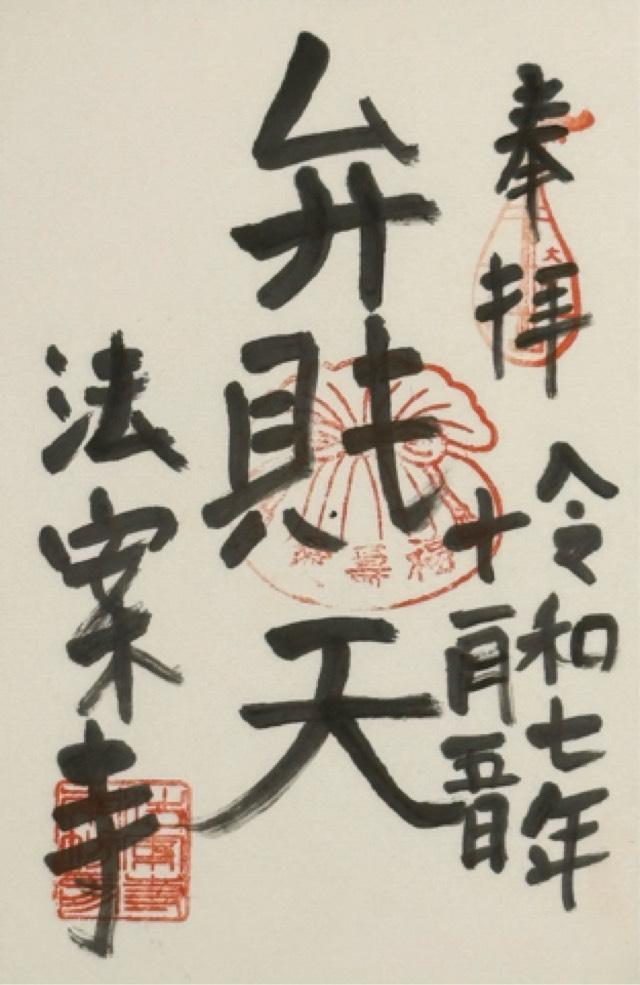 奉拝
令和七年
十一月五日
弁財天
法案寺